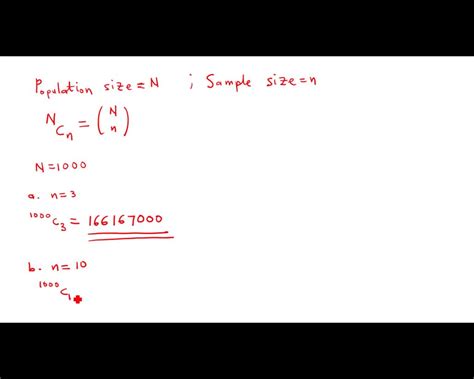 Population size = N ; Sample size = n
N C n = (N n)
N = 1000
a. n = 3
1000 C 3 = 166167000
b. n = 10
1000 C 1